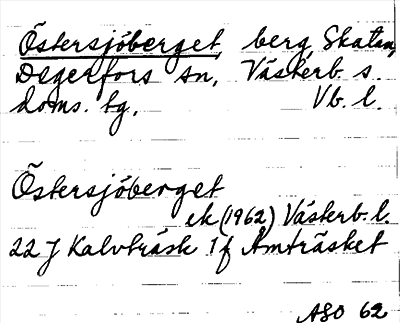 Östersjöberget, berg, Skatan,
Degerfors sn, Västerb. s.
doms. tg, Vb. l.
Östersjöberget
ek (1962) Västerb. l.
22 J Kalvträsk 1 f Åmträsket
ASO 62